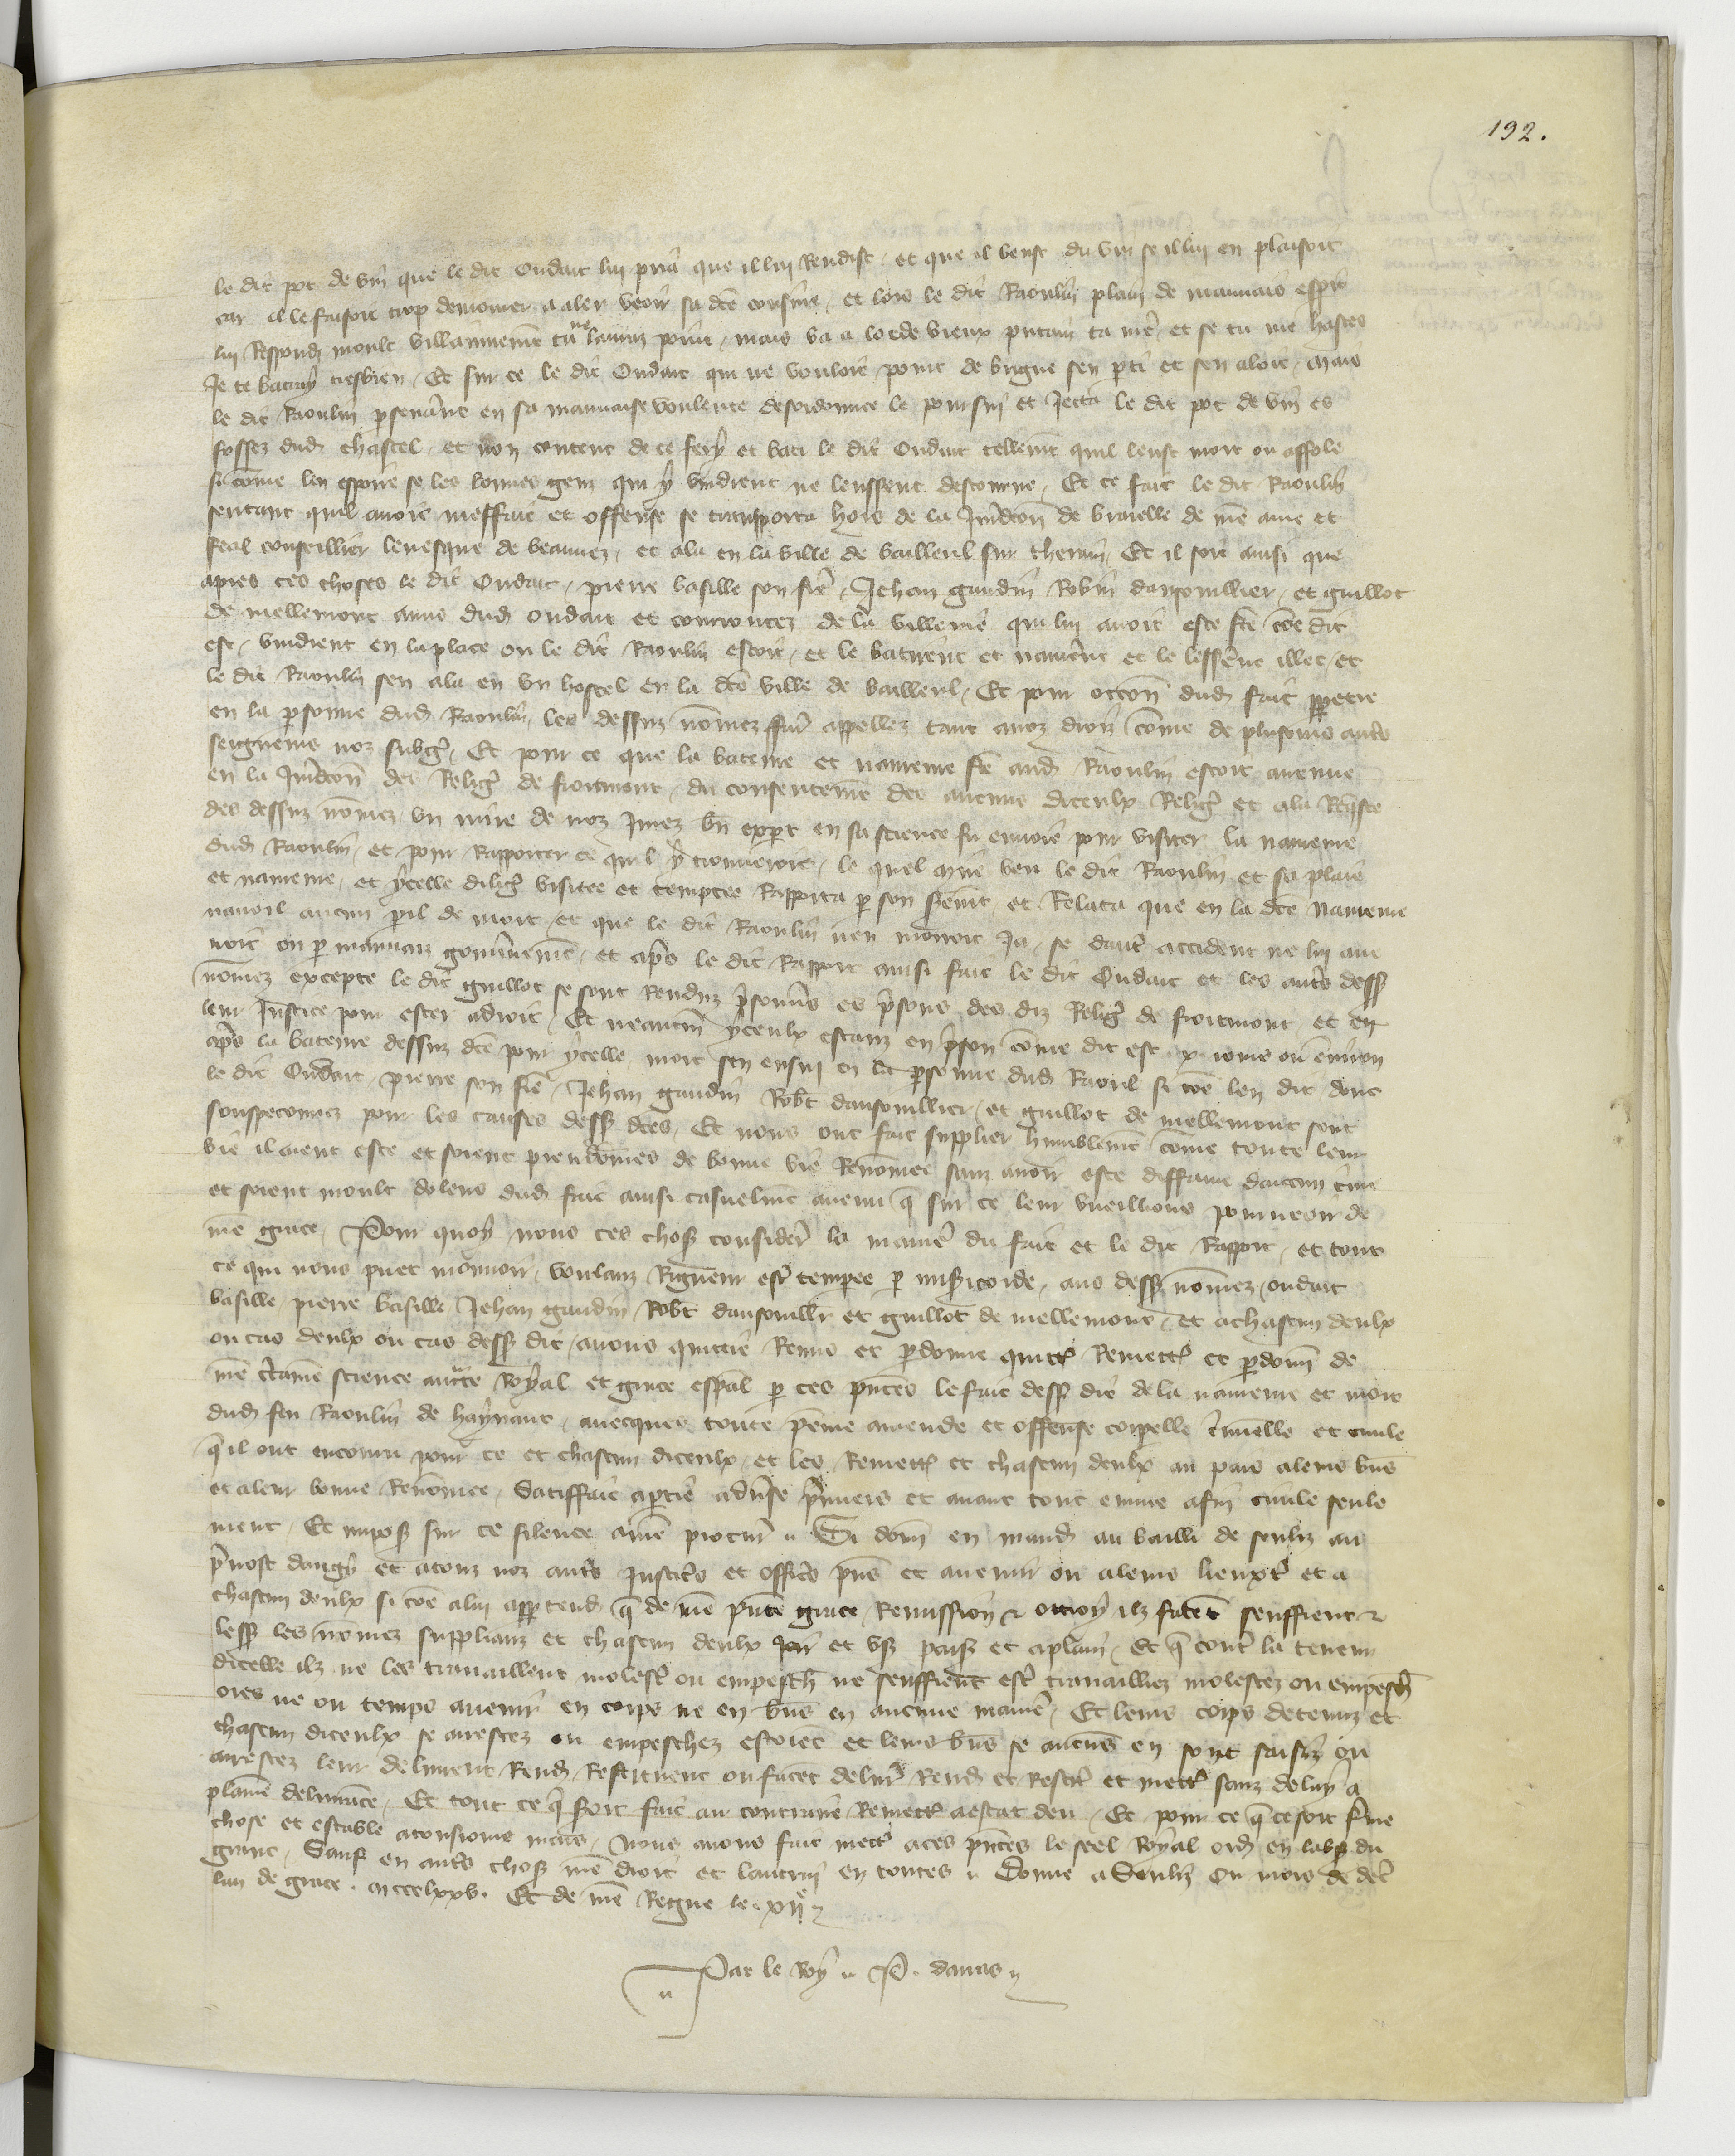 192.
le dit pot de vin que le dit Oudart lui pria que il lui Rendist, et que il beust du vin se il lui en plaisoit
car il le faisoit trop demourer a aler veoir sa dcē cousine, et lors le dit Raoulin plain de mauvais esprit
lui Respondi moult villainnemēt tu ne lauraz point, mais va a lorde vieux putain ta mere, et se tu me hastes
Je te batray tresbien, Et sur ce le dit Oudart qui ne vouloit point de brigue sen p̄ti et sen aloit, Mais
le dit Raoulin ꝑsevērant en sa mauvaise voulente desordonnee le poursui et Jecta le dit pot de vin es
fossez dud chastel, et non content de ce fery et bati le dit Oudart tellemēt quil leust mort ou affole
si cōme len espoire se les bonnes genz qui y vindrent ne leussent destourne, Et ce fait le dit Raoulin
sentant quil avoit meffait et offense se transporta hors de la Jur̄dcōn de Braielle de nr̄e ame et
feal conseillier levesque de beauvez, et ala en la ville de bailleul sur therain, Et il soit ainsi que
apres ces choses le dit Oudart, pierre basille son frē, Jehan gaudin Robin dansonvillier, et guillot
de mellemont amis dud oudart et courroucez de la villenie qui lui avoit este fcē cōe dit
est, vindrent en la place ou le dit Raoulin estoit, et le batirent et navrerēt et le lesserēt illec, et
le dit Raoulin sen ala en un hostel en la dcē ville de bailleul, Et pour occōn dud fait ꝑpetre
en la ꝑsonne dud Raoulin, les dessuz nōmez furēt appellez tant a noz droiz cōme de plusieurs aut̄s
seigneurs noz subgēz, Et pour ce que la bateure et navreure fcē aud Raoulin estoit avenue
en la Jur̄dcōn des Religx de froitmont, du consentemēt des aucuns diceulx Religx et a la Reqste
des dessuz nōmez un mire de noz Jurez bn̄ exꝑt en sa science fu envoié pour visiter la navreure
dud Raoulin, et pour Rapporter ce quil y trouveroit, le quel mire veu le dit Raoulin et sa plaie
et navreure, et ycelle diligt visitee et temptee Rapporta ꝑ son sermt et Relata que en la dcē navreure
navoit aucun ꝑil de mort, et que le dit Raoulin nen mouroit Ja, se daut̄ accident ne lui ave
noit ou ꝑ mauvaiz gouvernemēt, et ap̄s le dit Rapport ainsi fait le dit Oudart et les aut̄s dess
nōmez excepte le dit guillot se sont Renduz pr̄sonns es pr̄sons des diz Religx de froitmont et en
leur Justice pour ester a droit, Et neantm̄ yceulx estanz en pr̄son cōme dit est x iours ou environ
ap̄s la bateure dessuz dcē pour ycelle mort sen ensui en la ꝑsonne dud Raoul si cōe len dit dont
le dit Oudart, pierre son frē, Jehan gaudin Robt̄ dansonvillier, et guillot de mellemont sont
souspeconnez pour les causes dess dcēs, Et nous ont fait supplier humblemēt cōme toute leur
vie il aient este et soient preudōmes de bonne vie Renōmee sanz avoir este diffame daucun crime
et soient moult dolens dud fait ainsi casuelmēt avenu q̄ sur ce leur vueillions pourveoir de
nr̄e grace, Pour quoy nous ces choses considere la manie᷑ du fait et le dit Rapport, et tout
ce qui nous puet mouvoir, voulanz Rigueur estr̄ tempee ꝑ miscorde, aus dess nōmez oudart
basille, pierre basille Jehan gaudin Robt̄ dansonvillr̄ et guillot de mellemont, et a chascun deulx
ou cas deulx ou cas dess dit, avons quittie Remis et ꝑdonne quittōs Remettōs et ꝑdonnōs de
nr̄e certaine science auctte Royal et grace espāl ꝑ ces pn̄tes le fait dess dit de la navreure et mort
dud feu Raoulin de haynaut, avecques toute peine amende et offense corꝑelle crīminelle et civile
q̄ il ont encouru pour ce et chascun diceulx, et les Remettōs et chascun deulx au pais a leurs bn̄s
et a leur bonne Renōmee, Satiffait a ꝑtie adverse premiers et avant tout euvre afin civile seule
ment, Et imposōs sur ce silence a nr̄e procur̄, Si donnōs en mandt au bailli de senliz au
pr̄vost dangy et a touz noz aut̄s Justiciers et officiers pn̄s et avenir ou a leurs lieuxtn̄ et a
chascun deulx si cōe a lui appartendra q̄ de nr̄e pn̄te grace, Remission & ottroy ilz facēt seuffrent &
less les nōmez supplianz et chascun deulx Joir et user paisibt et aplain, Et q̄ cont̄ la teneur
dicelle ilz ne les travaillent molestēt ou empeschēt ne seuffrent estr̄ travailliez molestez ou empesch̄
ores ne ou temps avenir en corps ne en bn̄s en aucune manie᷑, Et leurs corps detenuz et
chascun diceulx se arrestez ou empeschez estoiēt et leurs bn̄s se aucuns en sont saisiz ou
arrestez leur delivrent Rendt Restituent ou facēt delivr̄ Rendr̄ et Restit̄ et mettr̄ sanz delay a
plaine delivrāce, Et tout ce q̄ seroit fait au contraire Remettēt a estat deu, Et pour ce q̄ ce soit ferme
chose et estable a tousiours mais, Nous avons fait mettr̄ a ces pn̄tes le seel Royal ordn̄e en labs du
grant, Sauf en aut̄s choses nr̄e droit et lautrui en toutes, Donne a Senliz Ou mois de dec̄
lan de grace mccclxxv. Et de nr̄e Regne le xiie
Par le Roy P. davas